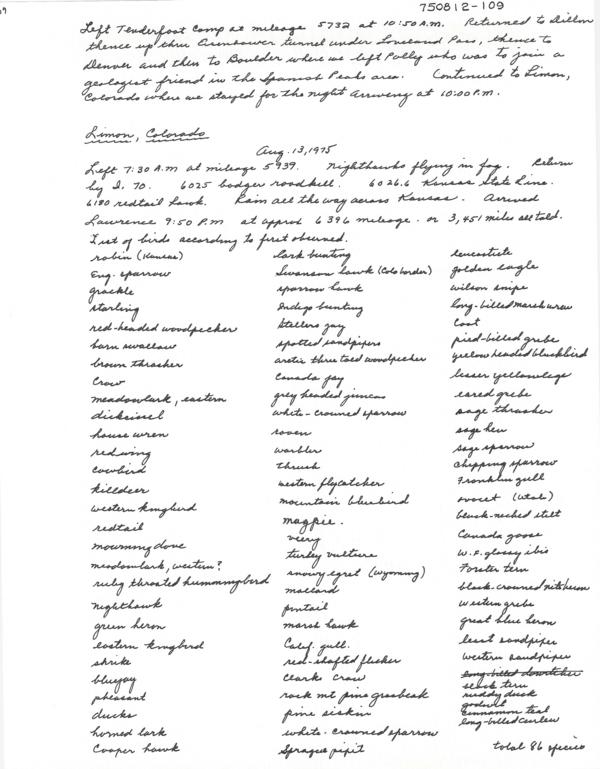 750812-109
Left Tenderfoot Camp at mileage 5732 at 10:50 A.M. Returned to Dillon
thence up thru Eisenhower tunnel under Loveland Pass, thence to
Denver and then to Boulder where we left Polly who was to join a
geologist friend in the Spanish Peaks area. Continued to Limon,
Colorado where we stayed for the night arriving at 10:00 P.M.
Limon, Colorado
Aug. 13, 1975
Left 7:30 A.M at mileage 5939. Nighthawks flying in fog. Return
by I. 70. 6025 badger roadkill. 6026.6 Kansas State Line.
6180 redtail hawk. Rain all the way across Kansas. Arrived
Lawrence 9:50 P.M at approx 6396 mileage. or 3,451 miles all told.
List of birds according to first observed.
robin (Kansas)
Eng. sparrow
grackle
starling
red-headed woodpecker
barn swallow
brown thrasher
Crow
meadowlark, eastern
dickcissel
house wren
redwing
cowbird
killdeer
western kingbird
redtail
mourning dove
meadowlark, western?
ruby throated hummingbird
nighthawk
green heron
eastern kingbird
shrike
bluejay
pheasant
ducks
horned lark
Cooper hawk
lark bunting
Swanson hawk (Colo border)
sparrow hawk
Indigo bunting
Stellers jay
spotted sandpipers
arctic three toed woodpecker
Canada jay
grey headed juncos
white-crowned sparrow
raven
warbler
thrush
western flycatcher
mountain bluebird
magpie.
veery
turkey vulture
snowy egret (Wyoming)
mallard
pintail
marsh hawk
Calif. gull.
red-shafted flicker
Clark crow
rock mt pine grosbeak
pine siskin
white-crowned sparrow
Sprague pipit
leucosticte
golden eagle
wilson snipe
long-billed marsh wren
Coot
pied-billed grebe
yellow headed blackbird
lesser yellowlegs
eared grebe
sage thrasher
sage hen
sage sparrow
chipping sparrow
Franklin gull
avocet (Utah)
black-necked stilt
Canada goose
W.F. glossy ibis
Forster tern
black-crowned nite heron
western grebe
great blue heron
least sandpiper
western sandpiper
long-billed dowitcher
black tern
ruddy duck
godwit
cinnamon teal
long-billed curlew
total 86 species